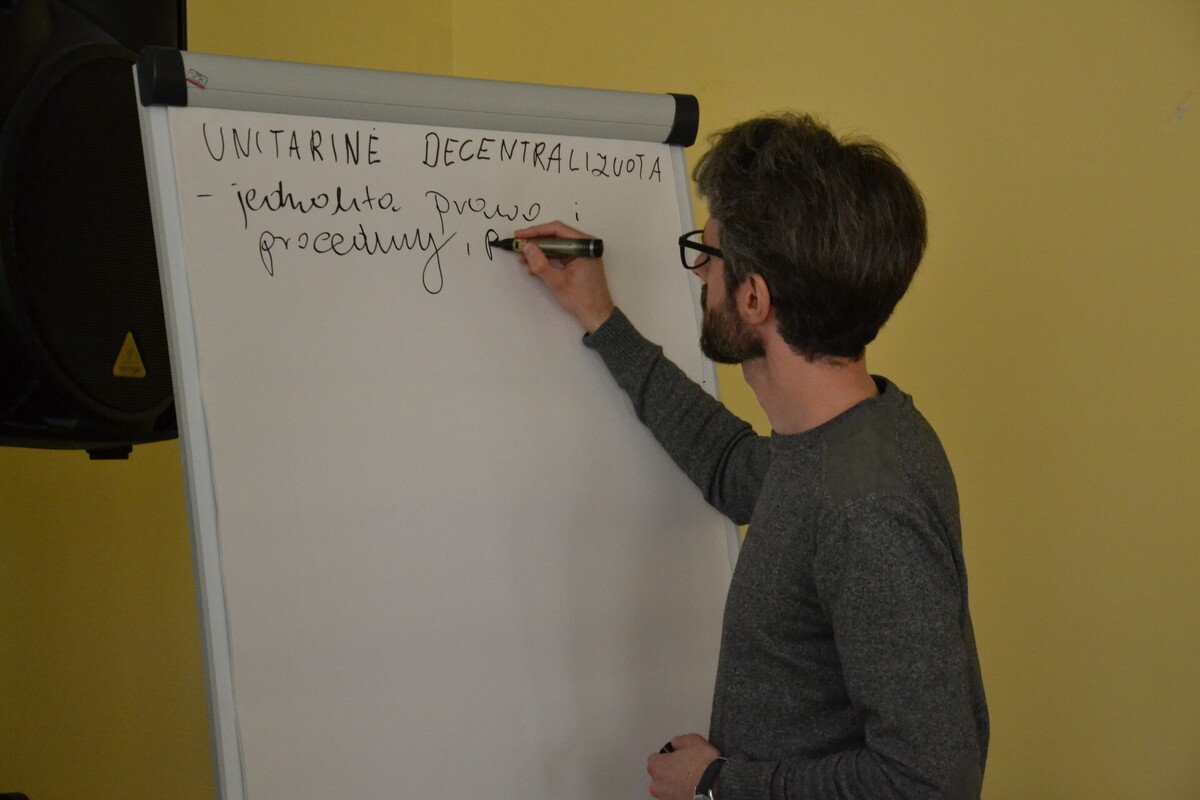 UNITARINĖ DECENTRALIZUOTA
- jednolita prawo i
procedury, p